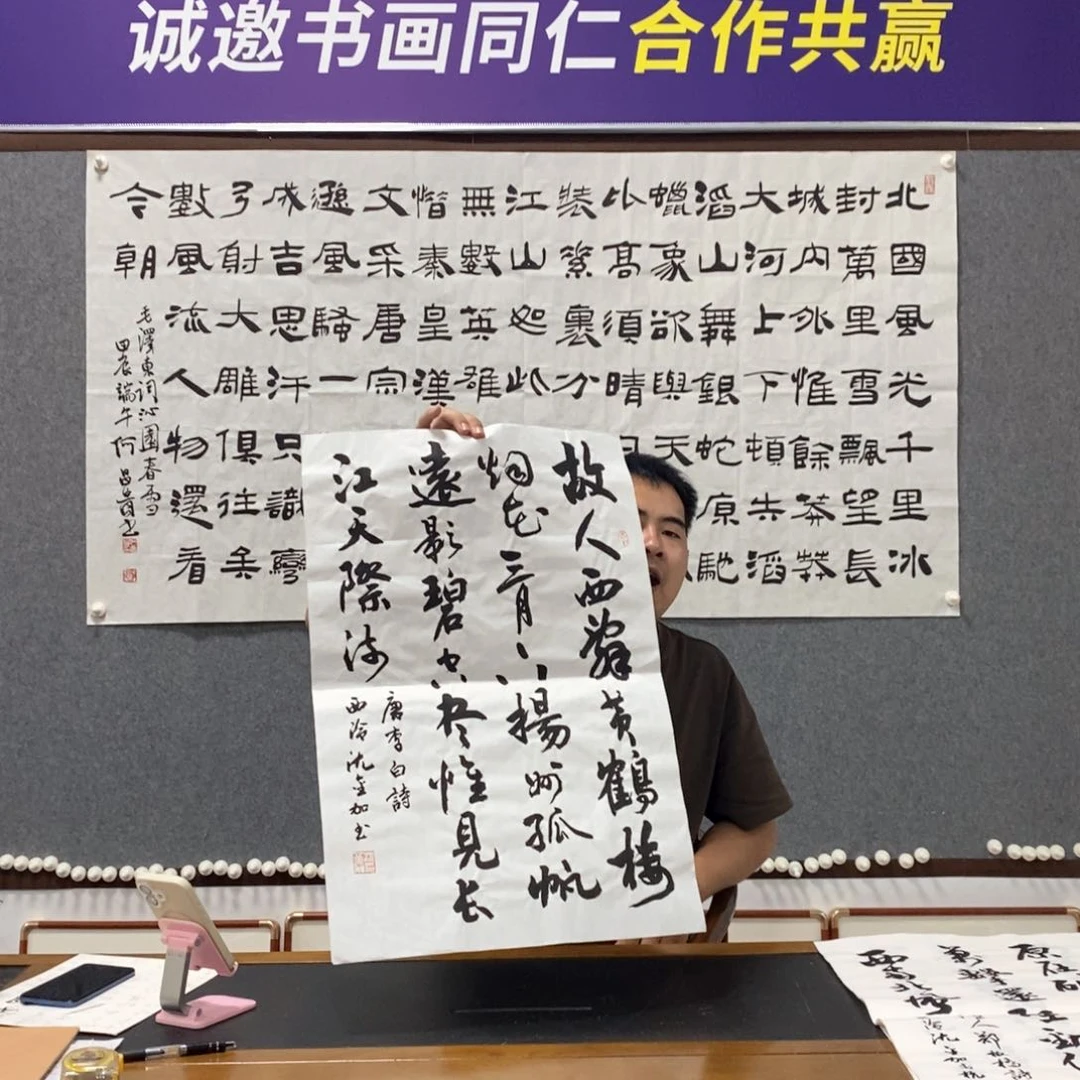 诚邀书画同仁合作共赢
北國風光千里冰
封萬里雪飄望長
城内外惟餘莽莽
大河上下頓失滔
滔山舞銀蛇原馳
蠟象欲與天
比高須晴日
裝素裹分
江山如此
無數英雄
惜秦皇漢
文采唐宗
遜風騷一
成吉思汗只識彎
弓射大雕俱往矣
數風流人物還看
今朝
毛澤東詞沁園春雪
甲辰端午何昌书
故人西辭黄鶴楼
烟花三月下揚州孤帆
遠影碧空尽惟見长
江天際流
唐李白詩
西泠沈金加书
原在
西南北